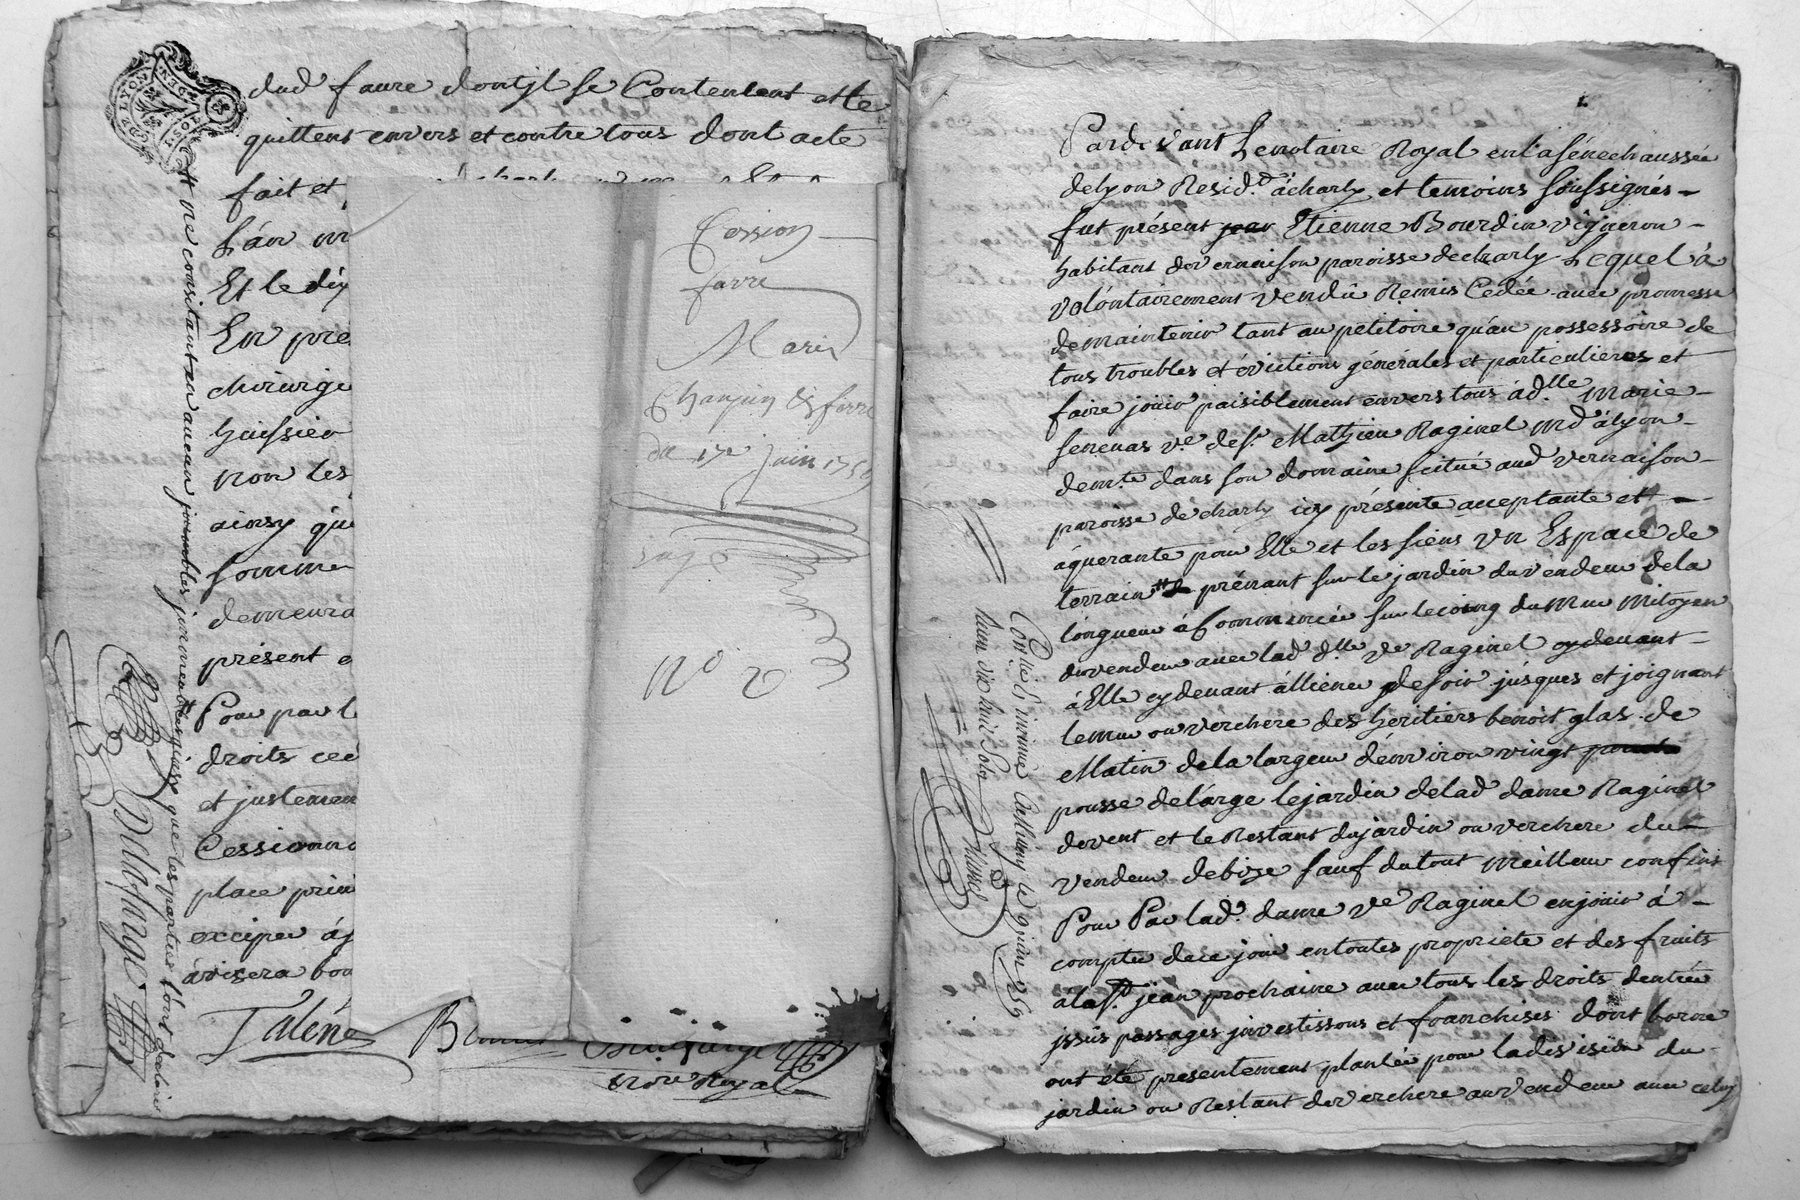 dud faure dont jl se Contentent et le
quittent envers et contre tous dont acte
fait et
L'an
Et le di
En pre
chirurgi
huissier
non les
ainsy que
somme
demeura
présent
Pour par l
droits ced
et justemen
Cessionna
place
exciper
avisera bon
et ne consistant en aucun
que les parties l'ont declaré
Delafarge
Cession
favre
Marin
du 17e juin 1759
No 2
Delafarge
Nore Royal
Pardevant Le notaire Royal en la sénechaussée
de lyon Resid.t à charly et temoins soussignés
fut présent jean Etienne Bourdin vigneron
habitant de vernaison paroisse de charly Lequel à
volontairement vendu Remis Cedée avec promesse
de maintenir tant au petitoire qu'au possessoire de
tous troubles et évictions génerales et particulieres et
faire jouir paisiblement envers tous à d.lle Marie
seneuas v.e de s.r Mathieu Raginel m.d à lyon
dem.te dans son domaine scitué aud vernaison
paroisse de charly icy présente acceptante et
aquerante pour Elle et les siens un Espace de
terrain prénant sur le jardin du vendeur de la
longueur à Commencée sur le coing du Mur Mitoyen
du vendeur avec lad d.lle v.e Raginel cydevant
à Elle cydevant alliené de soir jusques et joignant
le mur ou verchere des heritiers benoit glas de
Matin de la largeur d'environ vingt
pousse de large le jardin de lad dame Raginel
devent et le Restant du jardin ou verchere du
vendeur de bize sauf du tout meilleur confins
Pour Par lad. dame v.e Raginel en jouir à
compter de ce jour en toutes proprieté et des fruits
à la s.t jean prochaine avec tous les droits dentrée
jssus passages jnvestisons et franchises dont borne
ont été presentement plantée pour la division du
jardin ou Restant de verchere au vendeur avec celuy
Con.lé l'insinué le 9 juin 1759